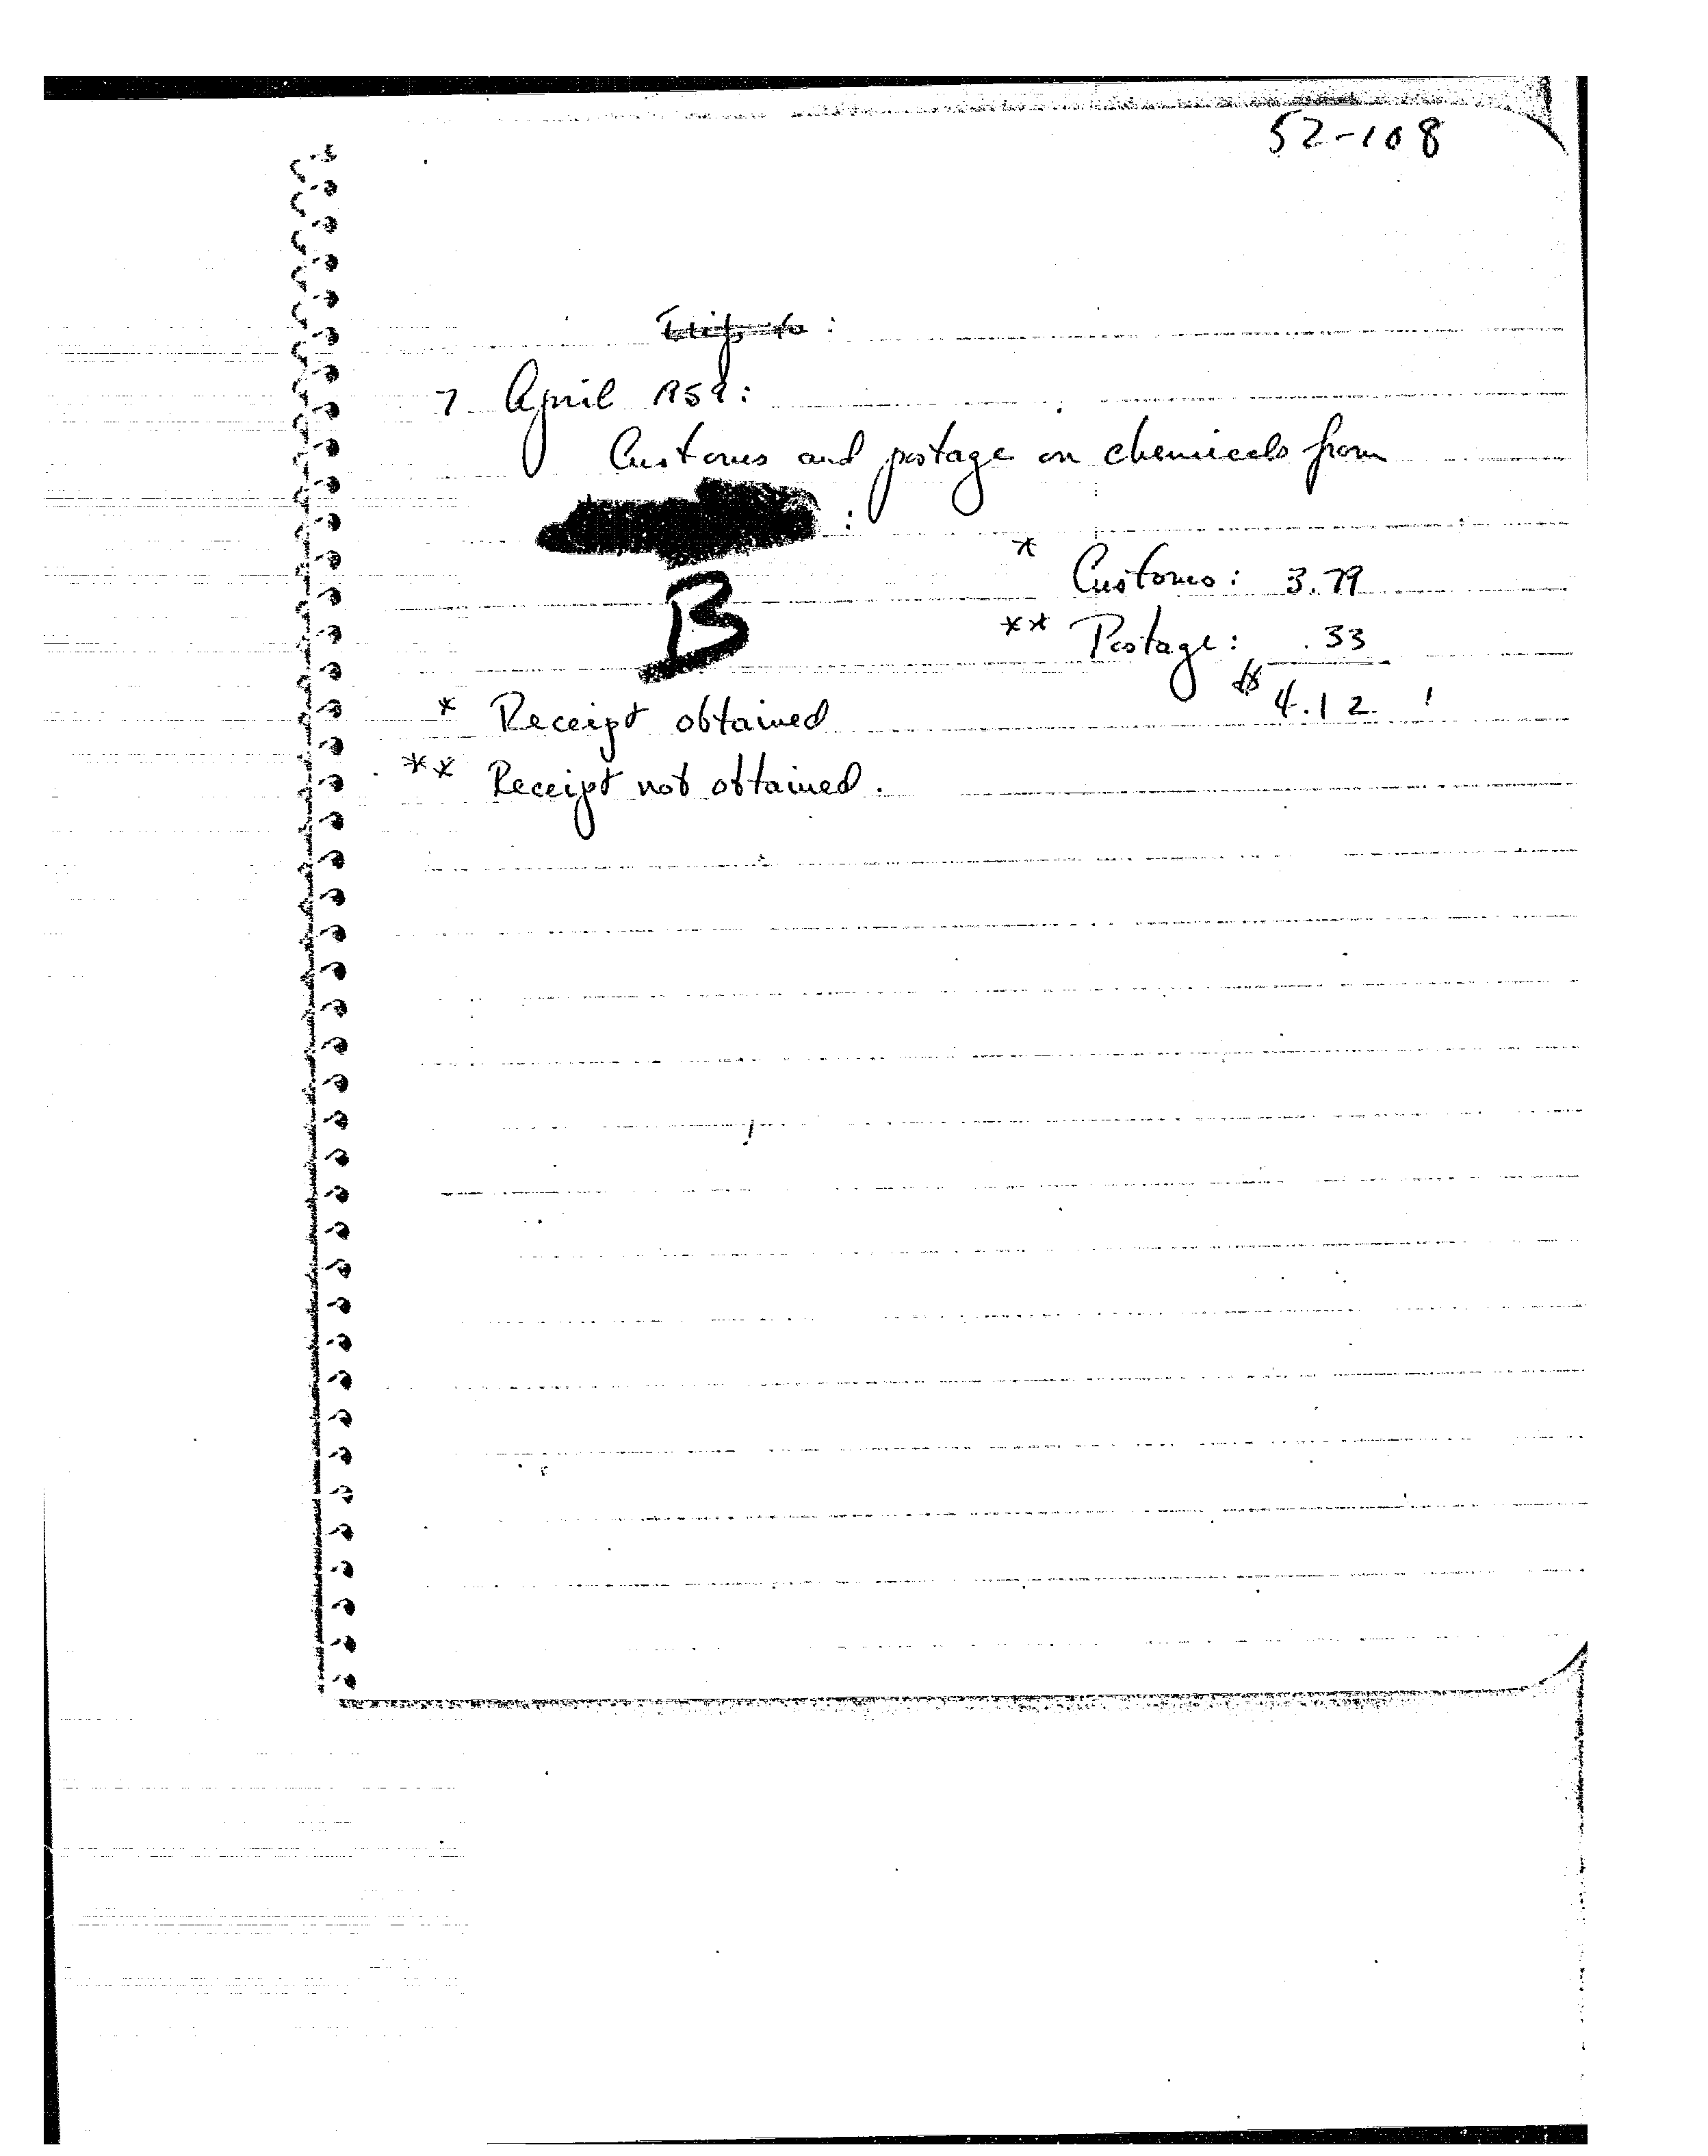 52-108
Trip to :
7 April 1959:
Customs and postage on chemicals from
:
B
* Customs: 3.79
** Postage: .33
$ 4.12
* Receipt obtained
** Receipt not obtained.